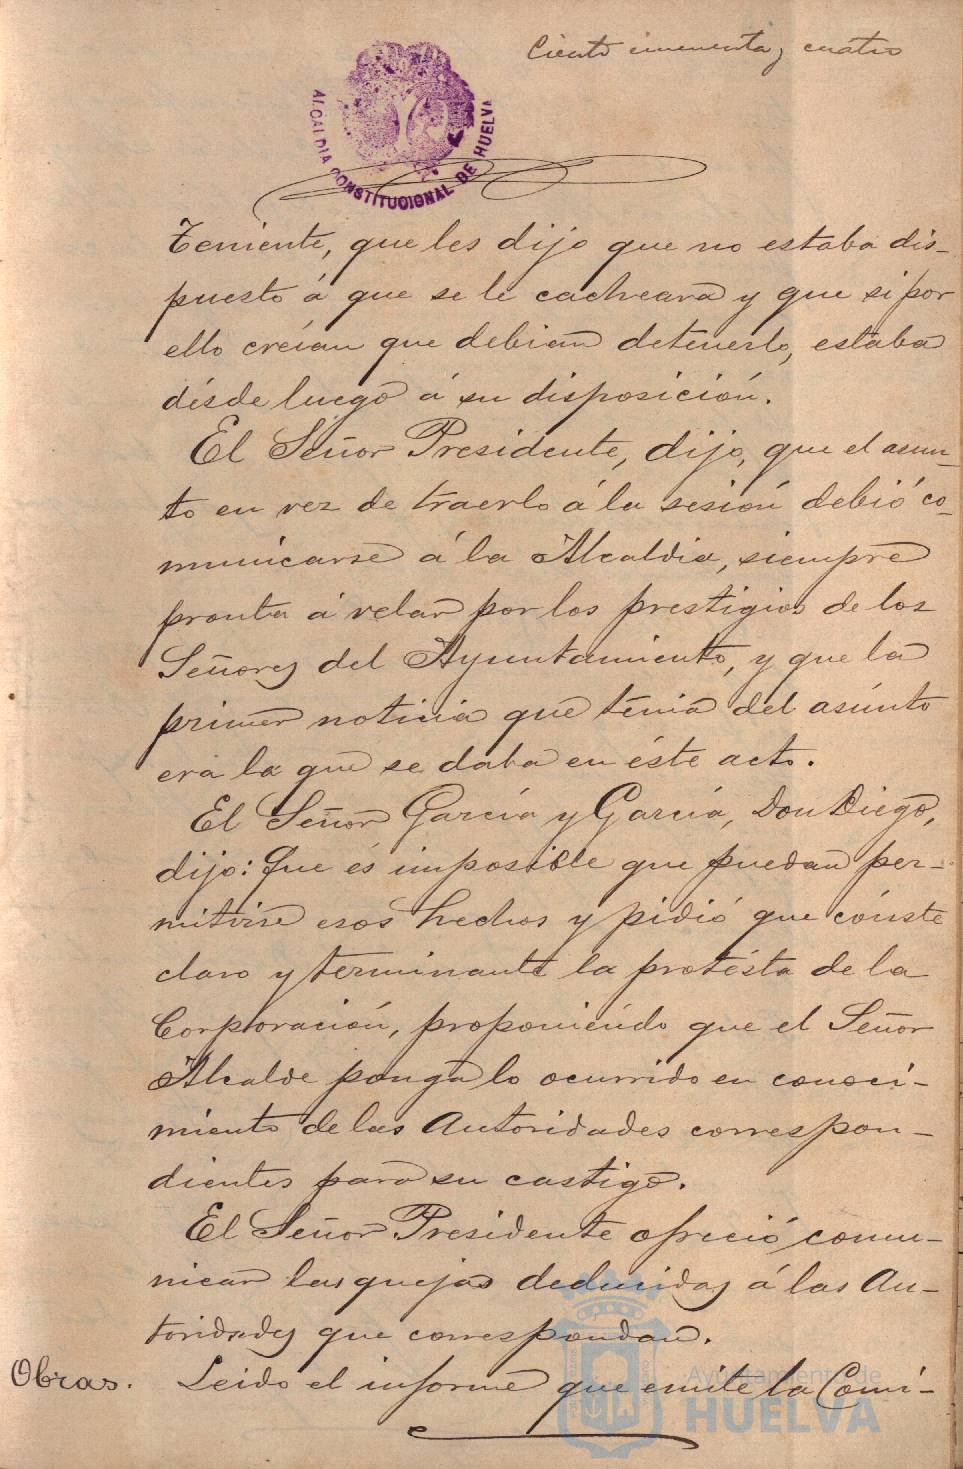 Ciento cincuenta y cuatro
ALCALDIA CONSTITUCIONAL DE HUELVA
teniente, que les dijo que no estaba dis-
puesto á que se le cacheara y que si por
ello creían que debian detenerlo, estaba
désde luego á su disposición.
El Señor Presidente, dijo, que el asun-
to en vez de traerlo á la sesión debió co-
municarse á la Alcaldia, siempre
pronta á velar por los prestigios de los
Señores del Ayuntamiento, y que la
primer noticia que tenia del asúnto
era la que se daba en éste acto.
El Señor García y García, Don Diego,
dijo: Que és imposible que puedan per-
mitirse esos hechos y pidió que cónste
claro y terminante la protésta de la
Corporación, proponiéndo que el Señor
Alcalde ponga lo ocurrido en conoci-
miento de las Autoridades correspon-
dientes para su castigo.
El Señor Presidente ofreció comu-
nicar las quejas deducidas á las Au-
toridades que correspondan.
Obras. Leido el informe que emite la Comi-
Ayuntamiento de
HUELVA